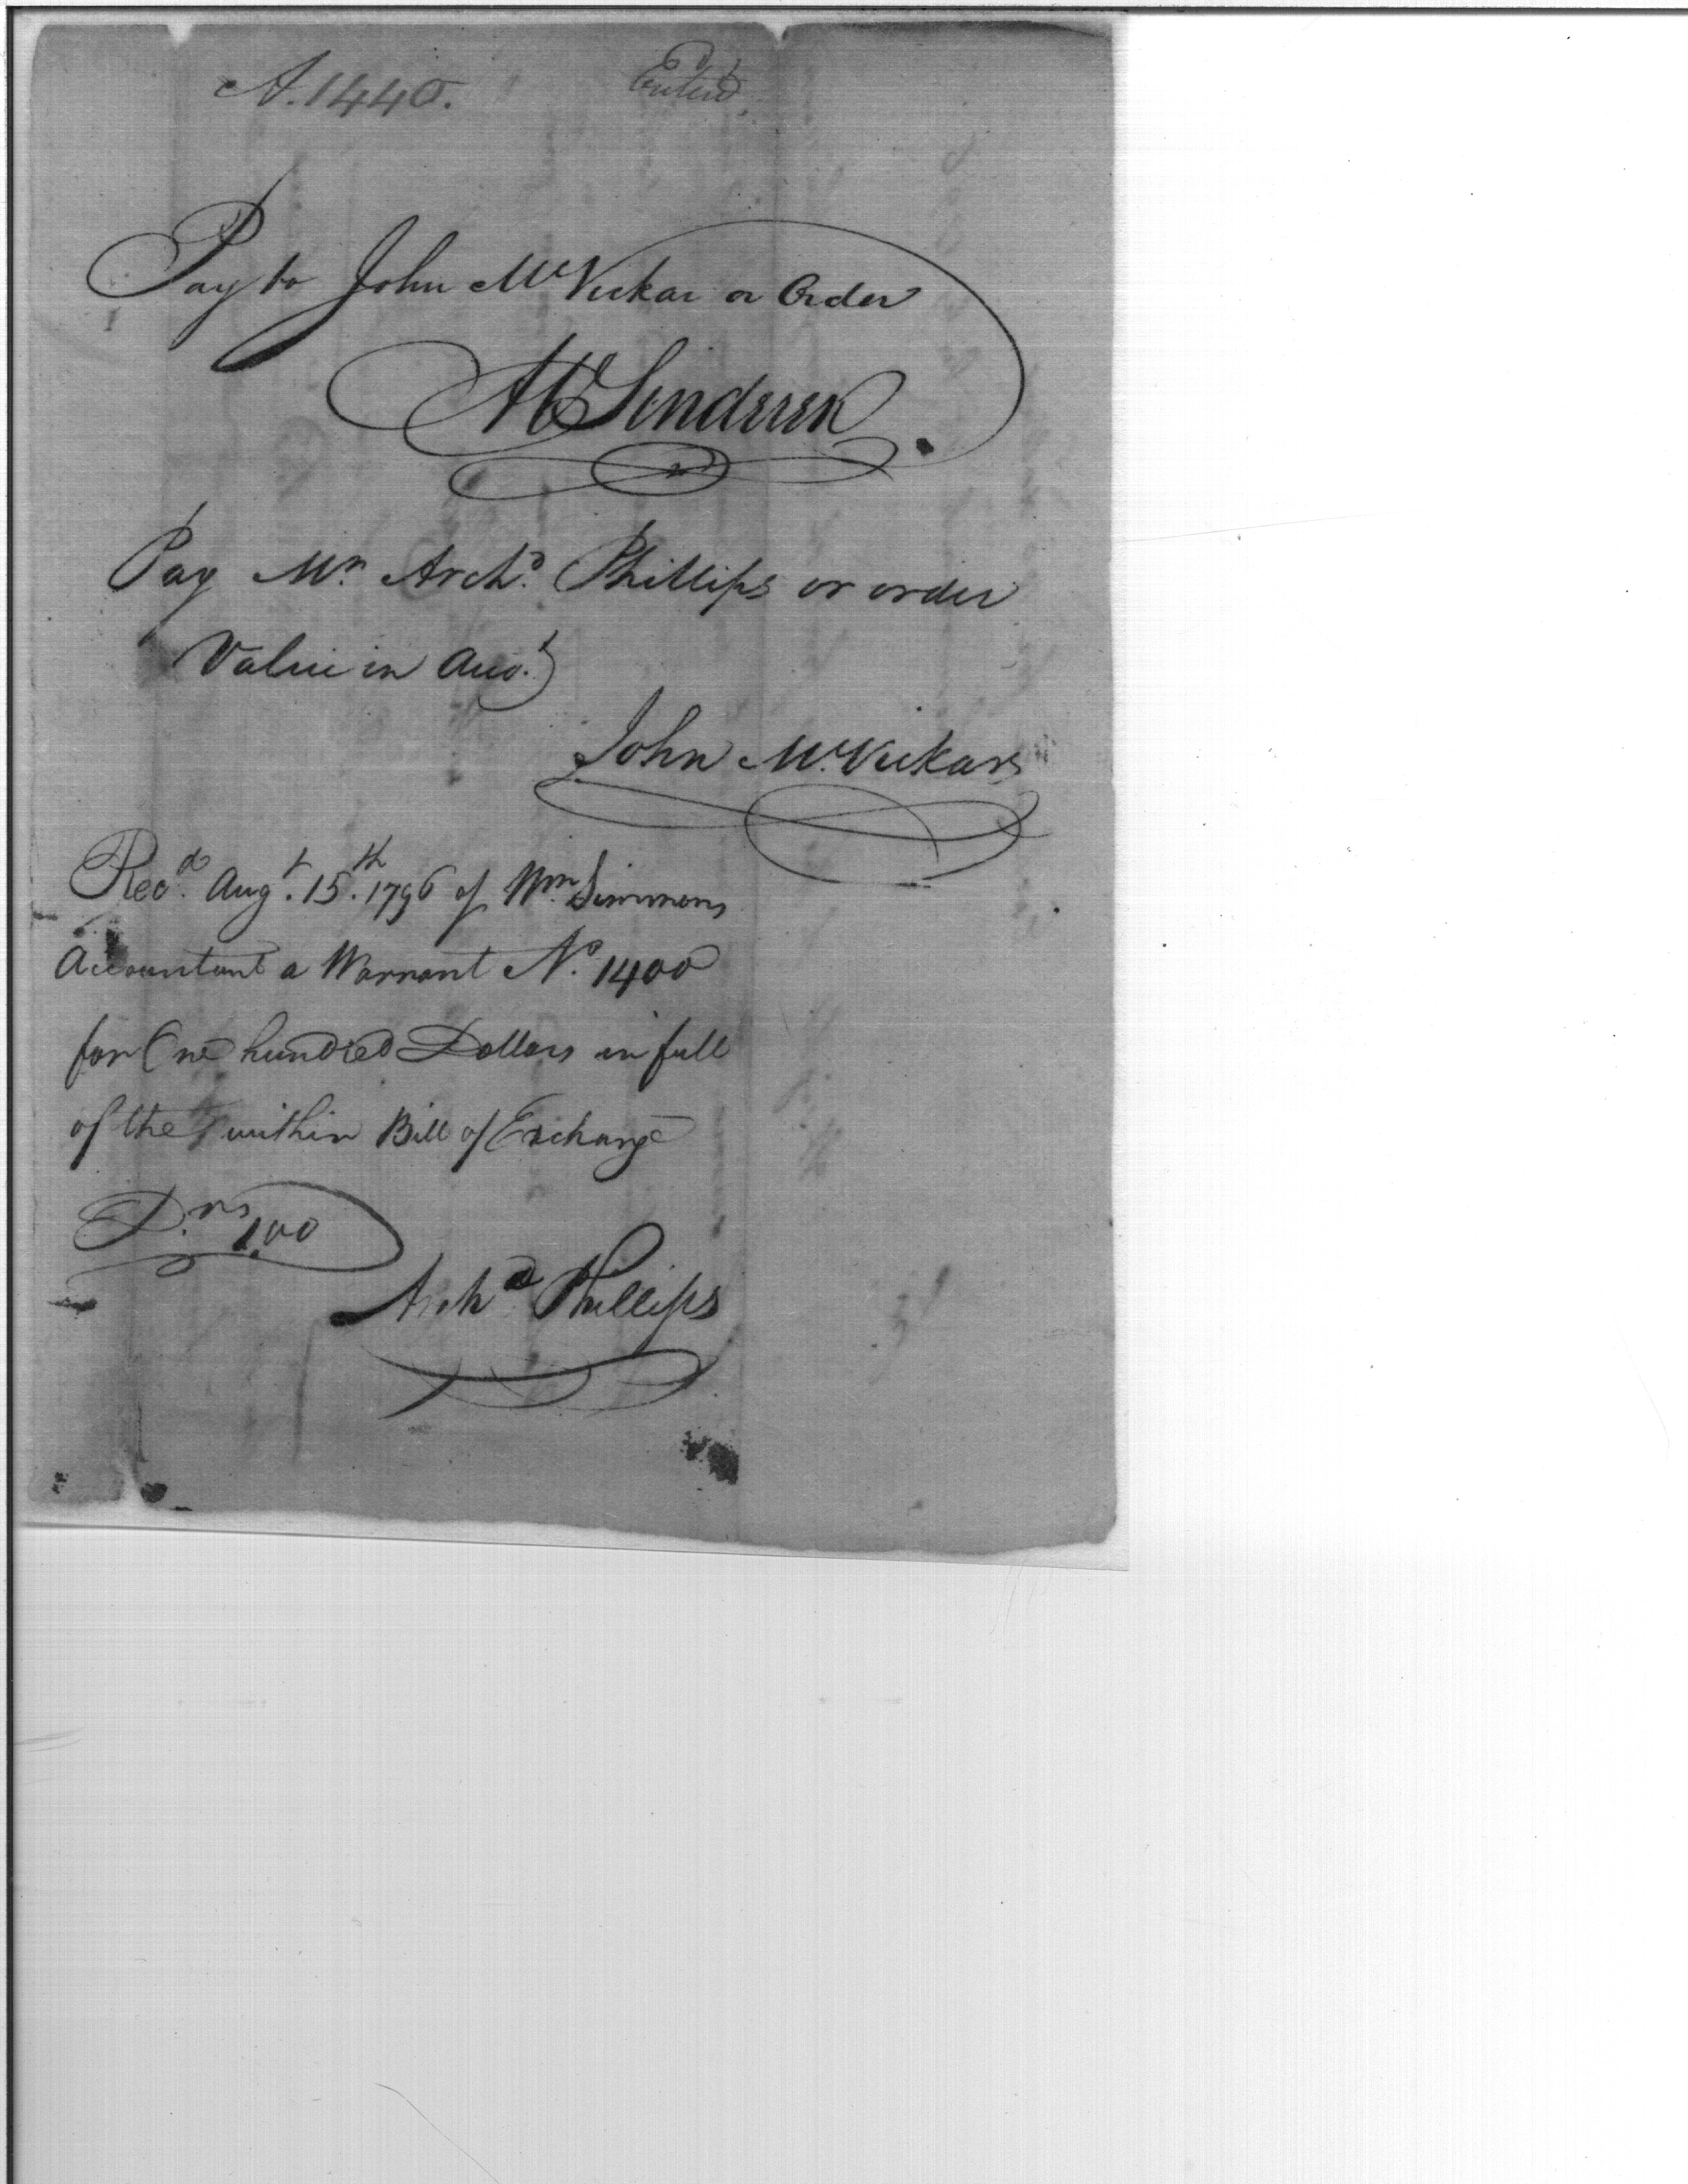 A. 1440.
Enterd
Pay to John McVickar or Order
Pay Mr. Archd. Phillips or order
Value in Acco.t
John McVickar
Recd. Augt. 15th. 1796 of Wm. Simmons
Accountant a Warrant No. 1400
for One hundred Dollars in full
of the within Bill of Exchange
D.rs 100
Archd. Phillips